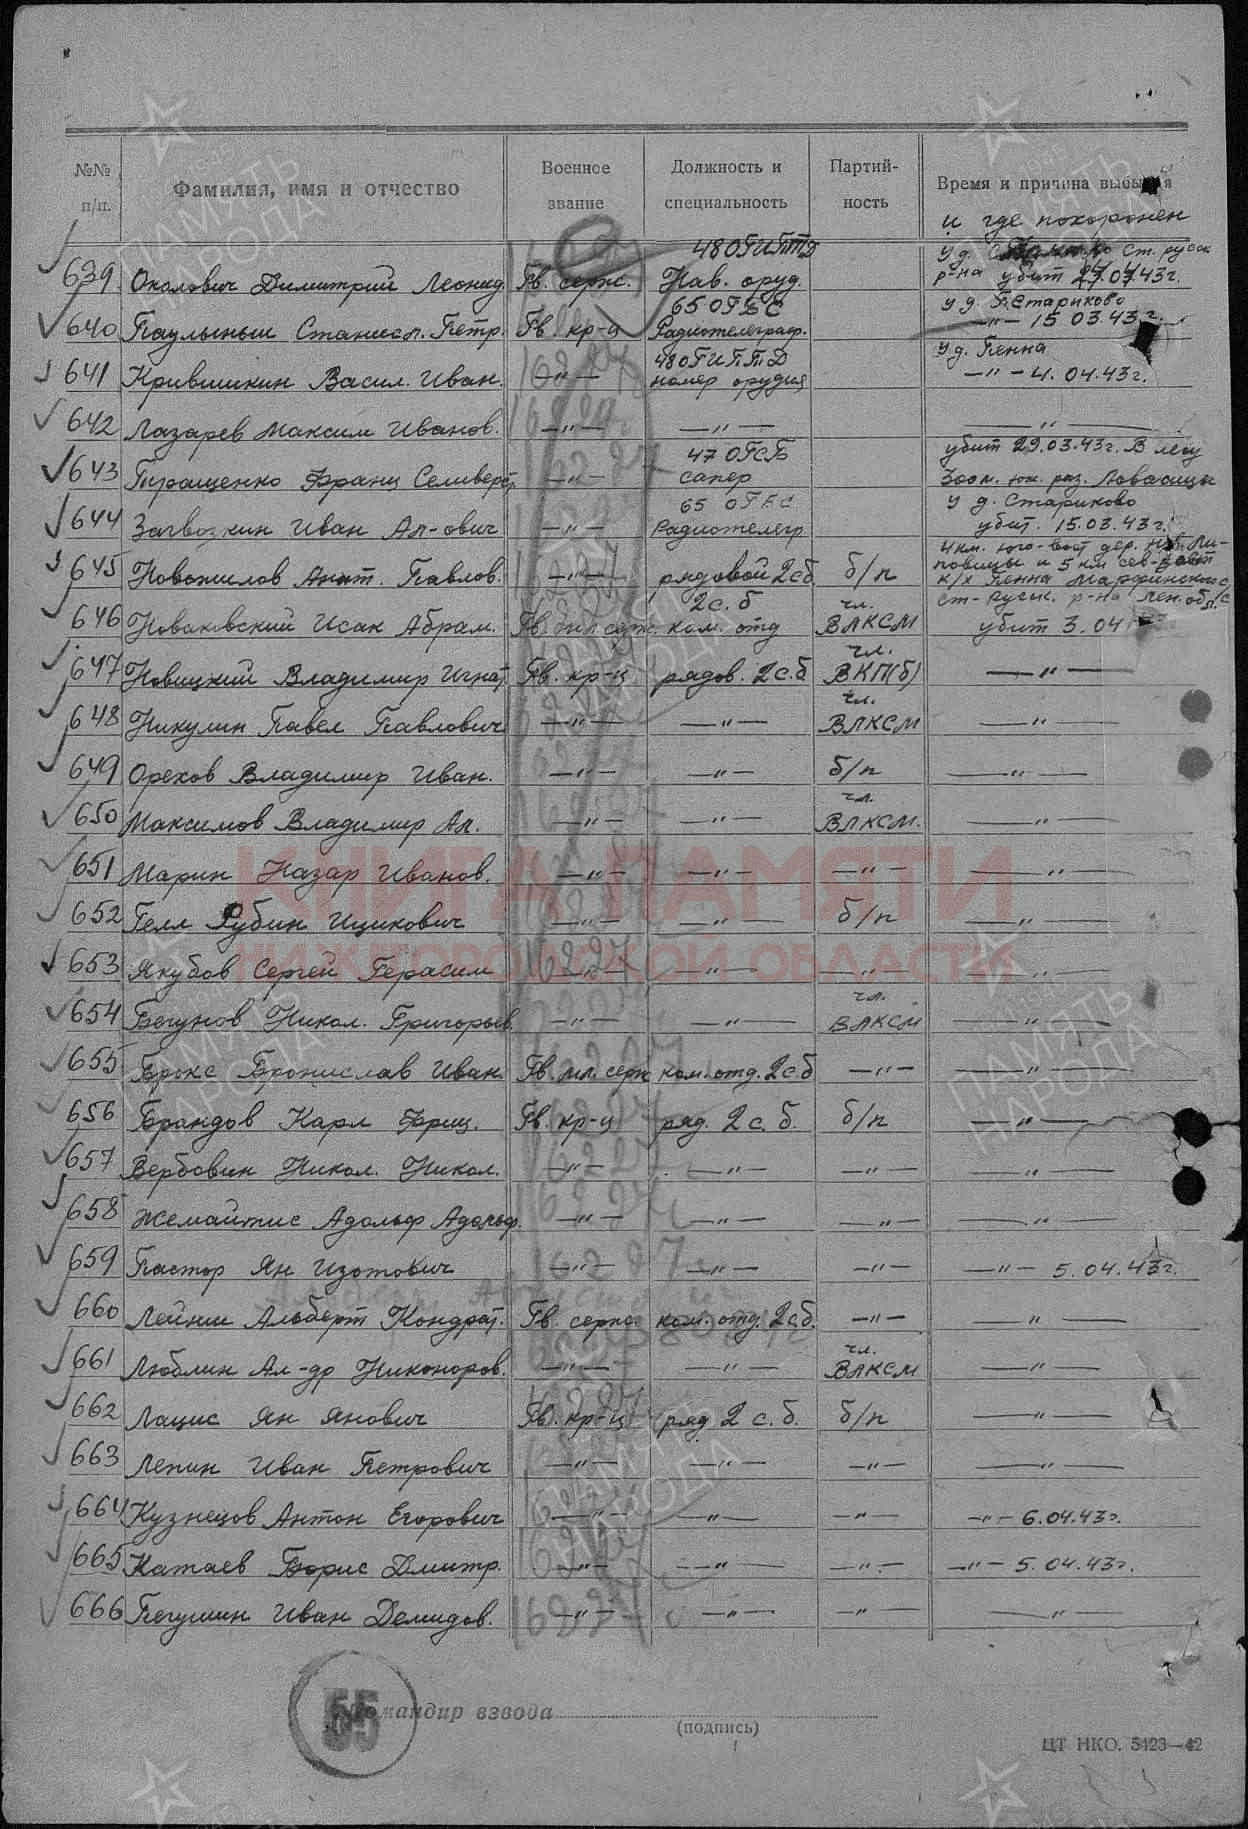 №№ п/п. Фамилия, имя и отчество Военное звание Должность и специальность Партийность Время и причина выбытия и где похоронен
639 Околович Димитрий Леонид. Гв. серж. 48 ОГИПТД Нав. оруд. у д. Ст. русск р-на убит 27.03.43г.
640 Паулыньш Станисл. Петр. Гв. кр-ц 65 ОГБС Радиотелеграф. у д. Стариково —"— 15.03.43г.
641 Крившикин Васил. Иван. —"— 48 ОГИПТД номер орудия у д. Пенна —"— 4.04.43г.
642 Лазарев Максим Иванов. —"— —"— —"—
643 Геращенко Франц Селиверстр. —"— 47 ОГСБ сапер убит 29.03.43г. В лесу 300м. юж. раз. Ловасицы
644 Загвоскин Иван Ал-ович —"— 65 ОГБС Радиотелегр. у д. Стариково убит. 15.03.43г.
645 Новожилов Анат. Павлов. —"— рядовой 2 с.б. б/п 4 км. юго-вост дер. Нов. Липовицы и 5 км сев-вост
646 Новаковский Исак Абрам. Гв. мл. серж. 2 с.б ком. отд чл. ВЛКСМ к/х Пенна Марфинского с/с ст-Русск. р-на Лен. обл. убит 3.04
647 Новицкий Владимир Игнат. Гв. кр-ц рядов. 2 с.б чл. ВКП(б) —"—
648 Никулин Павел Павлович —"— —"— чл. ВЛКСМ —"—
649 Орехов Владимир Иван. —"— —"— б/п —"—
650 Максимов Владимир Ал. —"— —"— чл. ВЛКСМ. —"—
651 Марин Назар Иванов. —"— —"— —"— —"—
КНИГА ПАМЯТИ
652 Гелл Рубин Ицикович —"— —"— б/п —"—
НИЖЕГОРОДСКОЙ ОБЛАСТИ
653 Якубов Сергей Герасим —"— —"— —"— —"—
654 Бегунов Никол. Григорьев. —"— —"— чл. ВЛКСМ —"—
655 Брокс Бронислав Иван. Гв. мл. серж ком. отд. 2 с.б —"— —"—
656 Брандов Карл Фриц. Гв. кр-ц ряд. 2 с. б. б/п —"—
657 Вербовин Никол. Никол. —"— —"— —"— —"—
658 Жемайтис Адольф Адольф. —"— —"— —"— —"—
659 Пастор Ян Изотович —"— —"— —"— —"— 5.04.43г.
660 Лейниш Альберт Кондрат. Гв. серж. ком. отд. 2 с.б. —"— —"—
661 Люблин Ал-др Никоноров. —"— —"— чл. ВЛКСМ —"—
662 Лацис Ян Янович Гв. кр-ц ряд 2 с. б. б/п —"—
663 Лепин Иван Петрович —"— —"— —"— —"—
664 Кузнецов Антон Егорович —"— —"— —"— —"— 6.04.43г.
665 Катаев Борис Дмитр. —"— —"— —"— —"— 5.04.43г.
666 Пегушин Иван Демидов. —"— —"— —"— —"—
55
Командир взвода
(подпись)
ЦТ НКО. 5423—42
ПАМЯТЬ НАРОДА